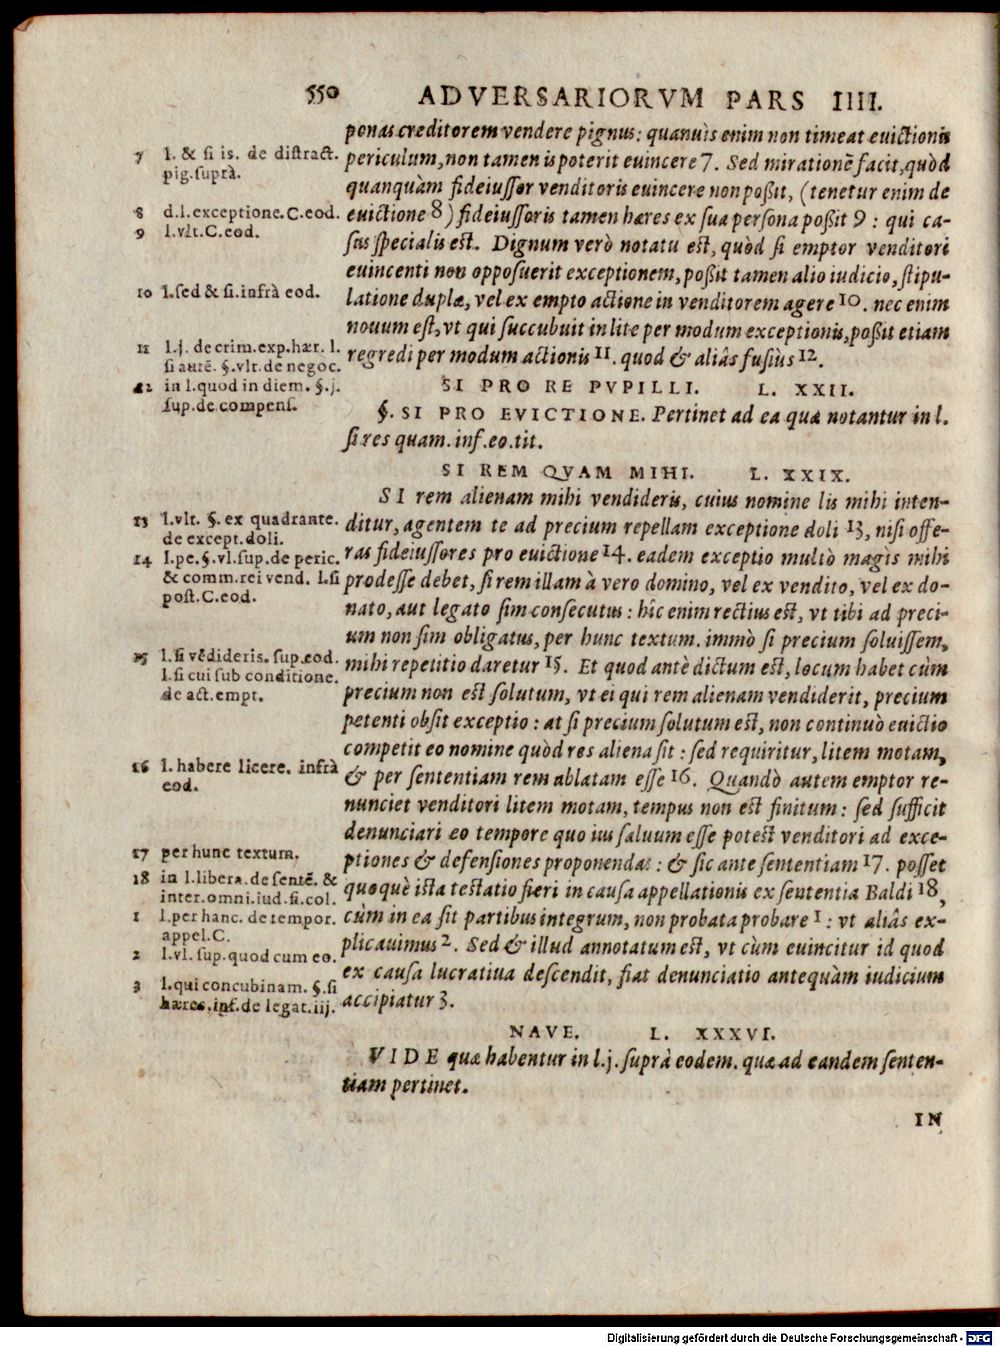 550 ADVERSARIORVM PARS IIII.
ponas creditorem vendere pignus: quanuis enim non timeat euictionis
periculum, non tamen is poterit euincere 7. Sed mirationẽ facit, quòd
quanquàm fideiussor venditoris euincere non poßit, (tenetur enim de
euictione 8) fideiussoris tamen hæres ex sua persona poßit 9 : qui ca-
sus specialis est. Dignum verò notatu est, quòd si emptor venditori
euincenti non opposuerit exceptionem, poßit tamen alio iudicio, stipu-
latione duplæ, vel ex empto actione in venditorem agere 10. nec enim
nouum est, vt qui succubuit in lite per modum exceptionis, poßit etiam
regredi per modum actionis 11. quod & aliâs fusiùs 12.
SI PRO RE PVPILLI. L. XXII.
§. SI PRO EVICTIONE. Pertinet ad ea quæ notantur in l.
si res quam. inf. eo. tit.
SI REM QVAM MIHI. L. XXIX.
SI rem alienam mihi vendideris, cuius nomine lis mihi inten-
ditur, agentem te ad precium repellam exceptione doli 13, nisi offe-
ras fideiussores pro euictione 14. eadem exceptio multò magìs mihi
prodesse debet, si rem illam à vero domino, vel ex vendito, vel ex do-
nato, aut legato sim consecutus : hîc enim rectius est, vt tibi ad preci-
um non sim obligatus, per hunc textum. immò si precium soluissem,
mihi repetitio daretur 15. Et quod antè dictum est, locum habet cùm
precium non est solutum, vt ei qui rem alienam vendiderit, precium
petenti obsit exceptio : at si precium solutum est, non continuò euictio
competit eo nomine quòd res aliena sit : sed requiritur, litem motam,
& per sententiam rem ablatam esse 16. Quandò autem emptor re-
nunciet venditori litem motam, tempus non est finitum : sed sufficit
denunciari eo tempore quo ius saluum esse potest venditori ad exce-
ptiones & defensiones proponendas : & sic ante sententiam 17. posset
quoquè ista testatio fieri in causa appellationis ex sententia Baldi 18,
cùm in ea sit partibus integrum, non probata probare 1 : vt aliâs ex-
plicauimus 2. Sed & illud annotatum est, vt cùm euincitur id quod
ex causa lucratiua descendit, fiat denunciatio antequàm iudicium
accipiatur 3.
NAVE. L. XXXVI.
VIDE quæ habentur in l. j. suprà eodem. quæ ad eandem senten-
tiam pertinet.
IN
7 l. & si is. de distract.
pig. suprà.
8 d. l. exceptione. C. eod.
9 l. vlt. C. eod.
10 l. sed & si. infrà eod.
11 l. j. de crim. exp. hær. l.
si autẽ. §. vlt. de negoc.
12 in l. quod in diem. §. j.
sup. de compens.
13 l. vlt. §. ex quadrante.
de except. doli.
14 l. pe. §. vl. sup. de peric.
& comm. rei vend. l. si
post. C. eod.
15 l. si vẽdideris. sup. eod.
l. si cui sub conditione.
de act. empt.
16 l. habere licere. infrà
eod.
17 per hunc textum.
18 in l. libera. de sentẽ. &
inter. omni. iud. fi. col.
1 l. per hanc. de tempor.
appel. C.
2 l. vl. sup. quod cum eo.
3 l. qui concubinam. §. si
hæres. inf. de legat. iij.
Digitalisierung gefördert durch die Deutsche Forschungsgemeinschaft - DFG